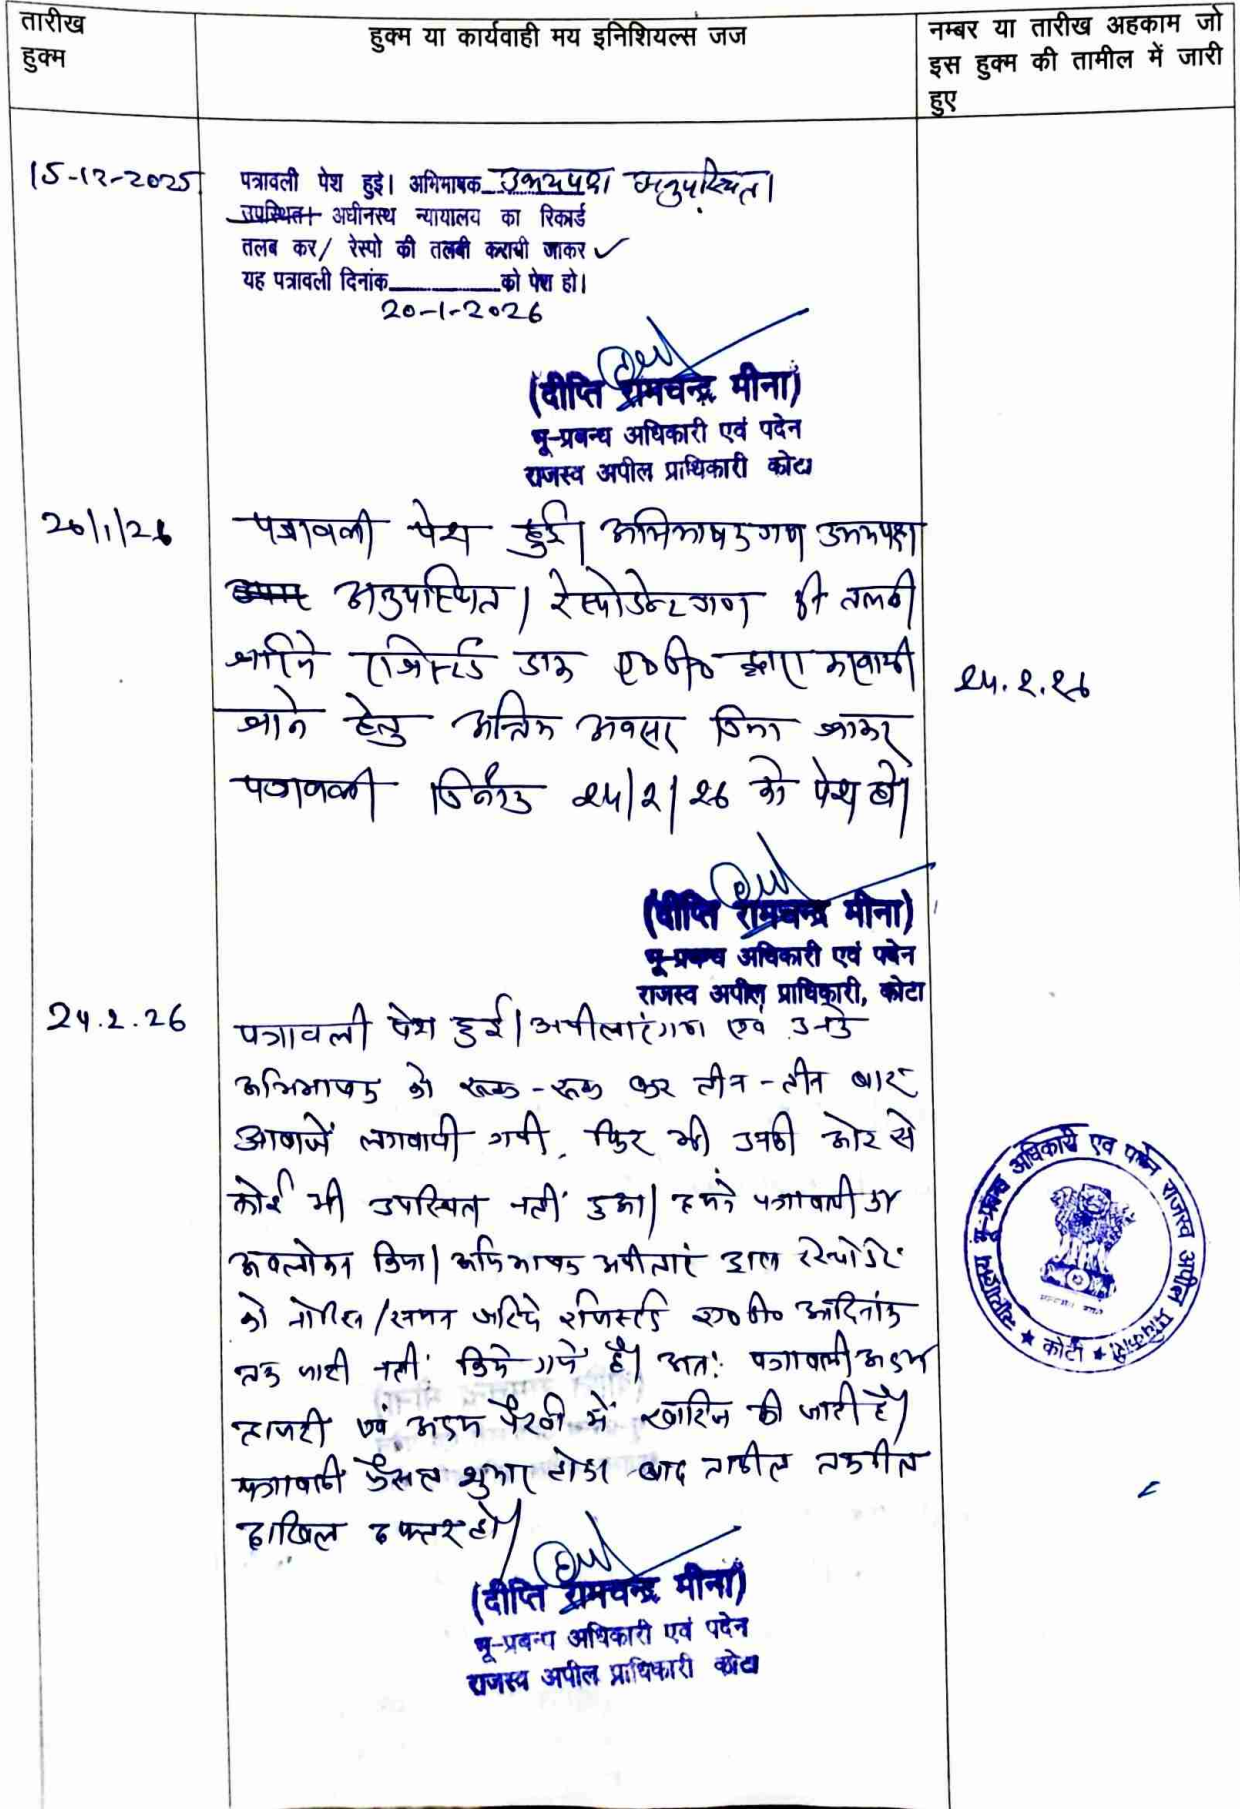 तारीख
हुक्म
हुक्म या कार्यवाही मय इनिशियल्स जज
नम्बर या तारीख अहकाम जो
इस हुक्म की तामील में जारी
हुए
15-12-2025
पत्रावली पेश हुई। अभिभाषक उभयपक्ष अनुपस्थित।
उपस्थित। अधीनस्थ न्यायालय का रिकार्ड
तलब कर/ रेस्पो की तलबी करायी जाकर ✓
यह पत्रावली दिनांक को पेश हो।
20-1-2026
(दीप्ति रामचन्द्र मीना)
भू-प्रबन्ध अधिकारी एवं पदेन
राजस्व अपील प्राधिकारी कोटा
20/1/26
पत्रावली पेश हुई। अभिभाषकगण उभयपक्ष
अनुपस्थित। रेस्पोडेन्टगण की तलबी
जरिये रजिस्टर्ड डाक ए०डी० द्वारा करवायी
जाने हेतु अन्तिम अवसर दिया जाकर
पत्रावली दिनांक 24/2/26 को पेश हो।
24.2.26
(दीप्ति रामचन्द्र मीना)
भू-प्रबन्ध अधिकारी एवं पदेन
राजस्व अपील प्राधिकारी, कोटा
24.2.26
पत्रावली पेश हुई। अपीलांटगण एवं उनके
अभिभाषक को रूक-रूक कर तीन-तीन बार
आवाजें लगवायी गयी, फिर भी उनकी ओर से
कोई भी उपस्थित नहीं हुआ। हमने पत्रावली का
अवलोकन किया। अभिभाषक अपीलांट द्वारा रेस्पोडेंट
को नोटिस/सम्मन जरिये रजिस्टर्ड ए०डी० आदिनांक
तक जारी नहीं किये गये है। अतः पत्रावली अदम
हाजरी एवं अदम पैरवी में खारिज की जाती है।
पत्रावली फैसल शुमार होकर बाद तामील तकमील
दाखिल दफ्तर हो।
(दीप्ति रामचन्द्र मीना)
भू-प्रबन्ध अधिकारी एवं पदेन
राजस्व अपील प्राधिकारी कोटा
न्यायालय भू-प्रबन्ध अधिकारी एवं पदेन राजस्व अपील प्राधिकारी
★ कोटा ★